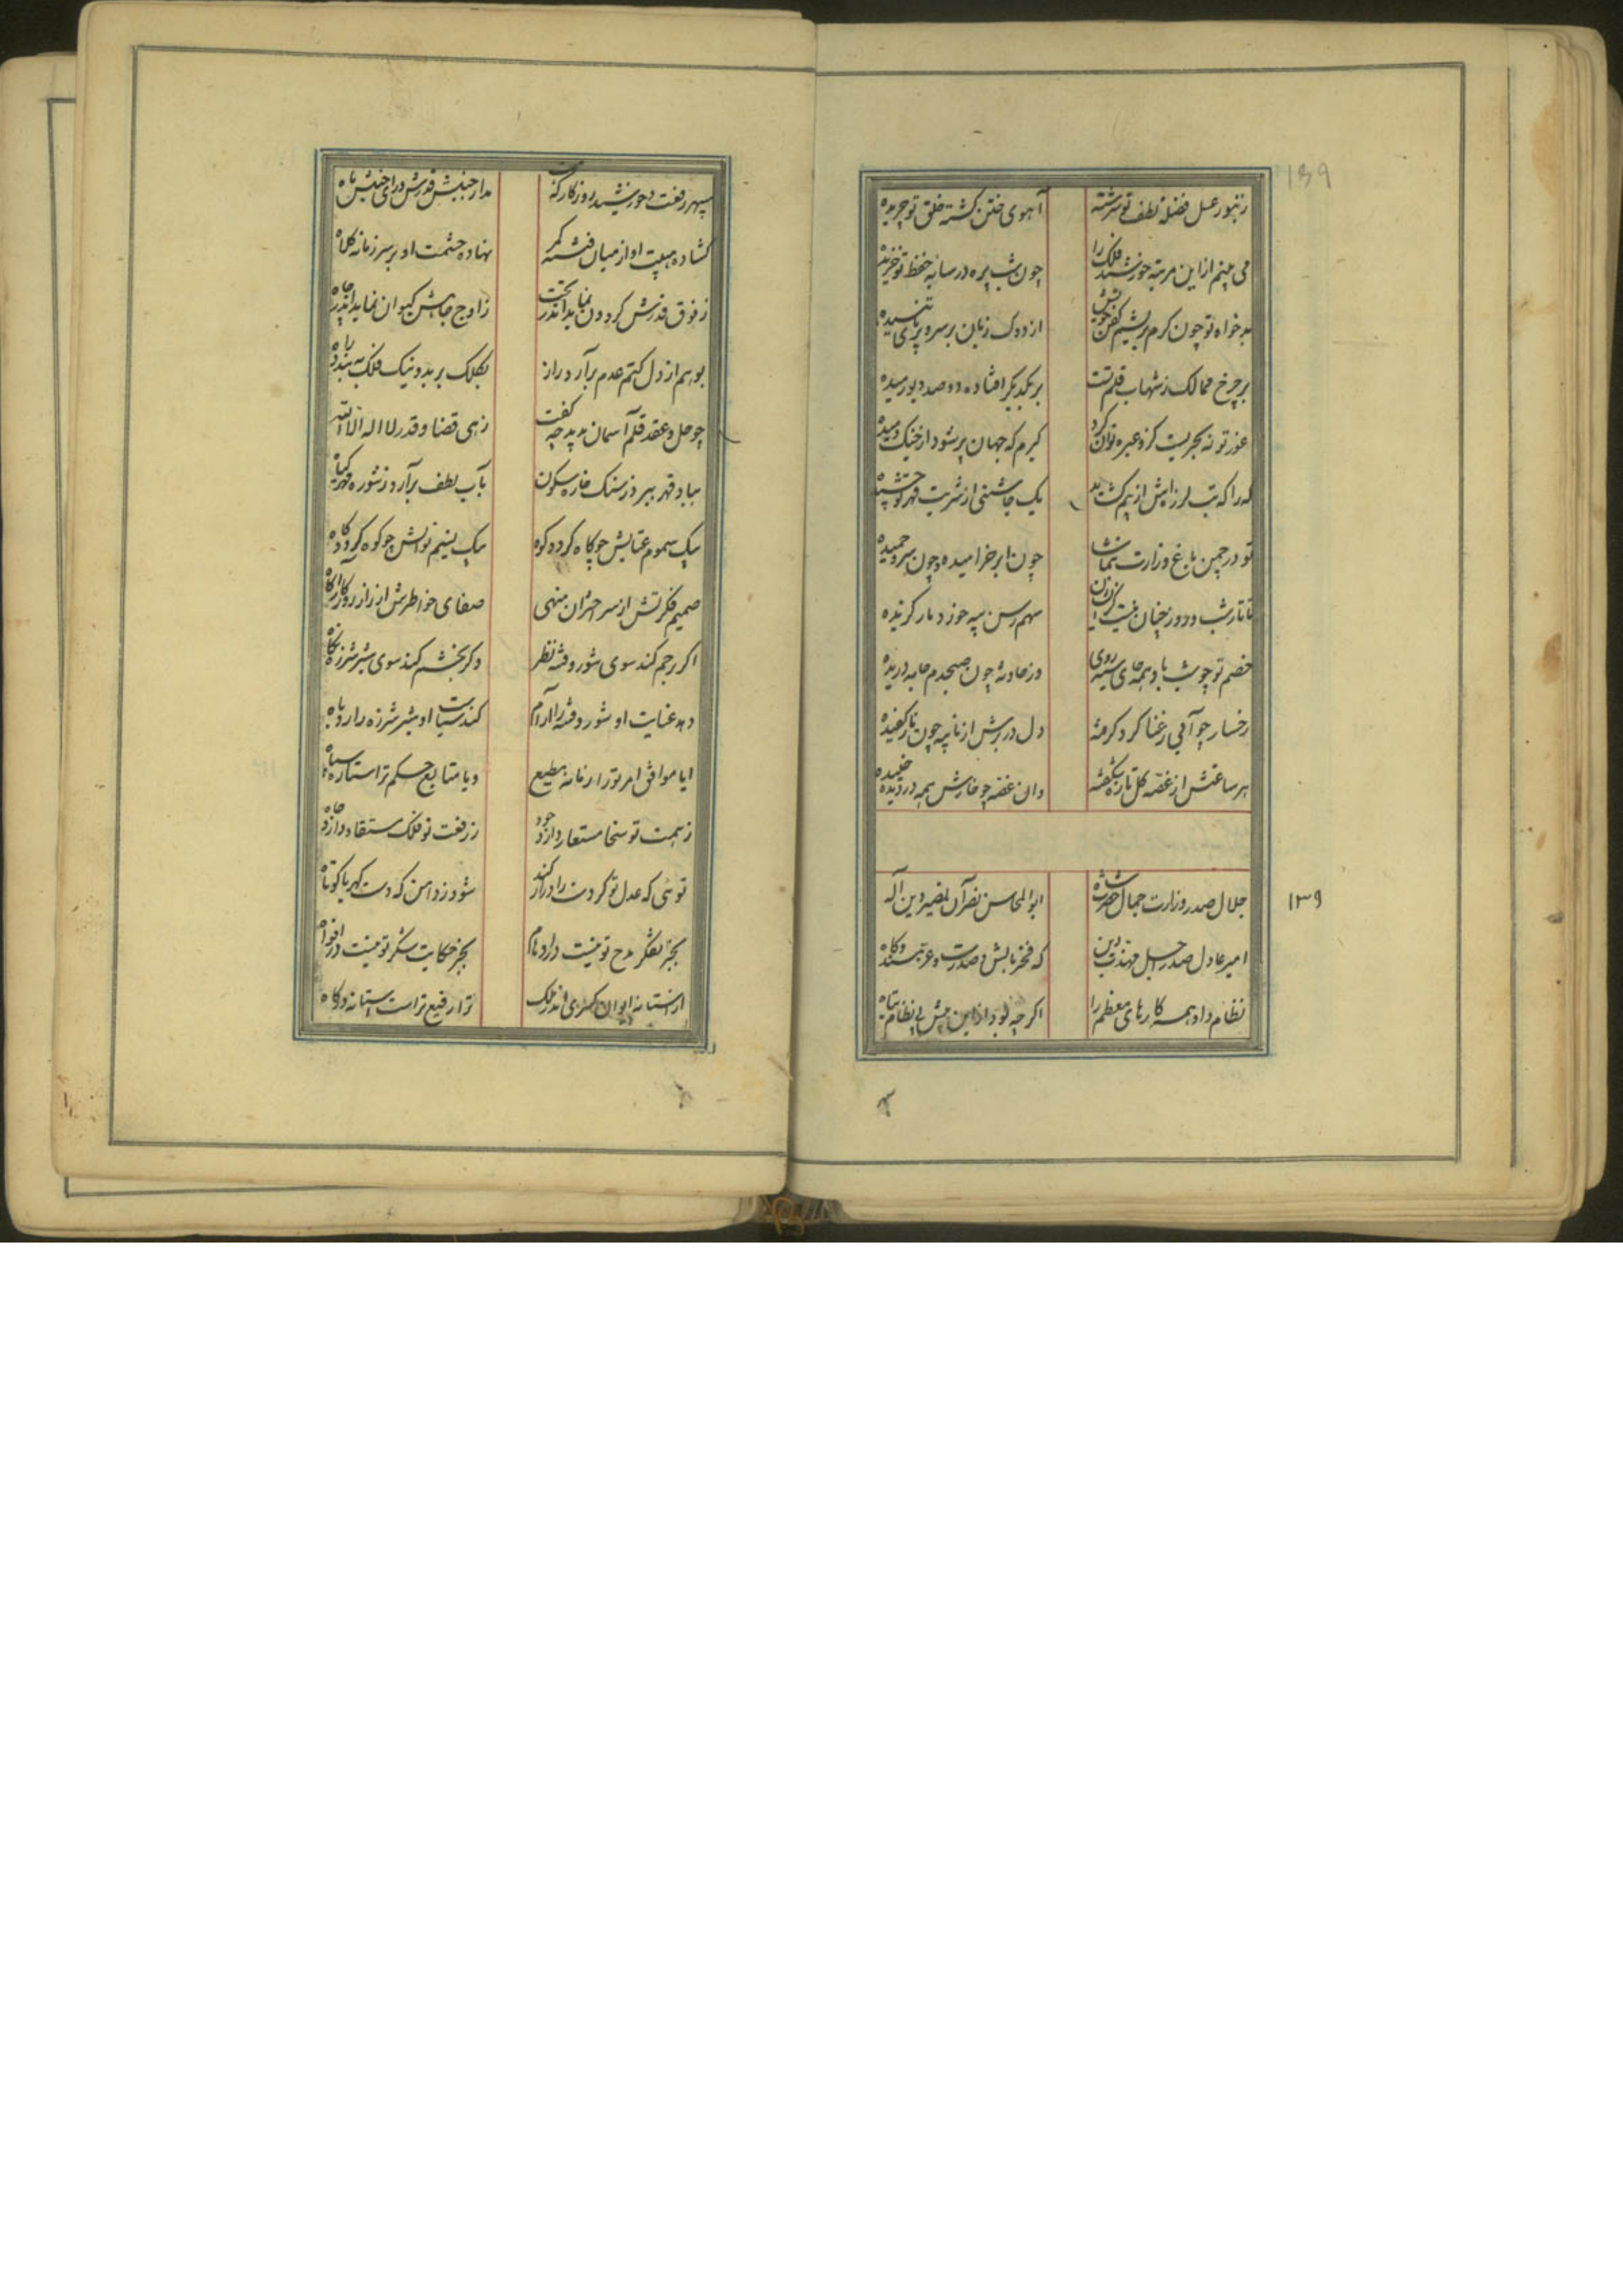 139
زنبور عسل فضله لطف تو سرشته
آهوی ختن کشته خلق تو چریده
می بینم ازین مرتبه خورشید فلک را
چون شب پره در سایه حفظ تو خزیده
بدخواه تو چون کرم بریشم کفن خویش
از دوک زبان بر سر و بر پای تنیده
بر چرخ ممالک ز شهاب قلم تست
بر یکدیگر افتاده دو صد دیو رمیده
غور تو نه بحریست کزو عبره توان کرد
گیرم که جهان پر شود از خیک دمیده
یک چاشنی از شربت قهر تو چشیده
تو در چمن باغ وزارت بتماشا
چون ابر خرامیده و چون سرو چمیده
خصم تو چو شب باد همه جای سیه روی
وز حادثه چون صبحدم جامه دریده
رخسار چو آبی ز عنا گرد گرفته
دل در برش از نایبه چون نار کفیده
هر ساعتش از غصه گل تازه شکفته
وان غصه چو خارش همه در دیده خلیده
۱۳۹
جلال صدر وزارت جمال حضرت شاه
ابوالمحاسن نصر آن نصیر دین اله
امیر عادل صدر اجل مهذب دین
که فخر بالش و صدرست و عز مسند و گاه
نظام داد همه کارهای معظم را
اگرچه بود ازین پیش بی نظام و تباه
سپهر رفعت و خورشید روزگار که
مدار جنبش قدرش ورای جنبش ماه
گشاده هیبت او از میان فتنه کمر
نهاده حشمت او بر سر زمانه کلاه
ز فوق قدرش گردون نماید اندر تحت
ز اوج جاهش کیوان نماید اندر چاه
بوهم از دل کتم عدم برآرد راز
بکلک بر بد و نیک فلک ببندد راه
چو حل و عقد قلم آسمان بدید چه گفت
زهی قضا و قدر لا اله الا الله
بباد قهر ببرد ز سنگ خاره سکون
بآب لطف برآرد ز شوره مهر گیاه
بیک سموم عتابش چو کاه گردد کوه
بیک نسیم نوازش چو کوه گردد کاه
ضمیر فکرتش از سر اختران منهی
صفای خاطرش از راز روزگار آگاه
اگر رحم کند سوی شور و فتنه نظر
وگر بخشم کند سوی شیر شرزه نگاه
دهد عنایت او شور و فتنه را آرام
کند سیاست او شیر شرزه را روباه
ایا موافق امر تورا زمانه مطیع
ویا متابع حکم ترا ستاره سپاه
ز همت تو سخا مستعار دارد جود
ز رفعت تو فلک مستفاد دارد جاه
توئی که عدل تو گر دست را دراز کند
شود ز دامن که دست کهربا کوتاه
بجز تفکر مدح تو نیست در اوهام
بجز حکایت شکر تو نیست در افواه
از آستانه ایوان کسری اندر ملک
ترا رفیع تر است آستانه درگاه